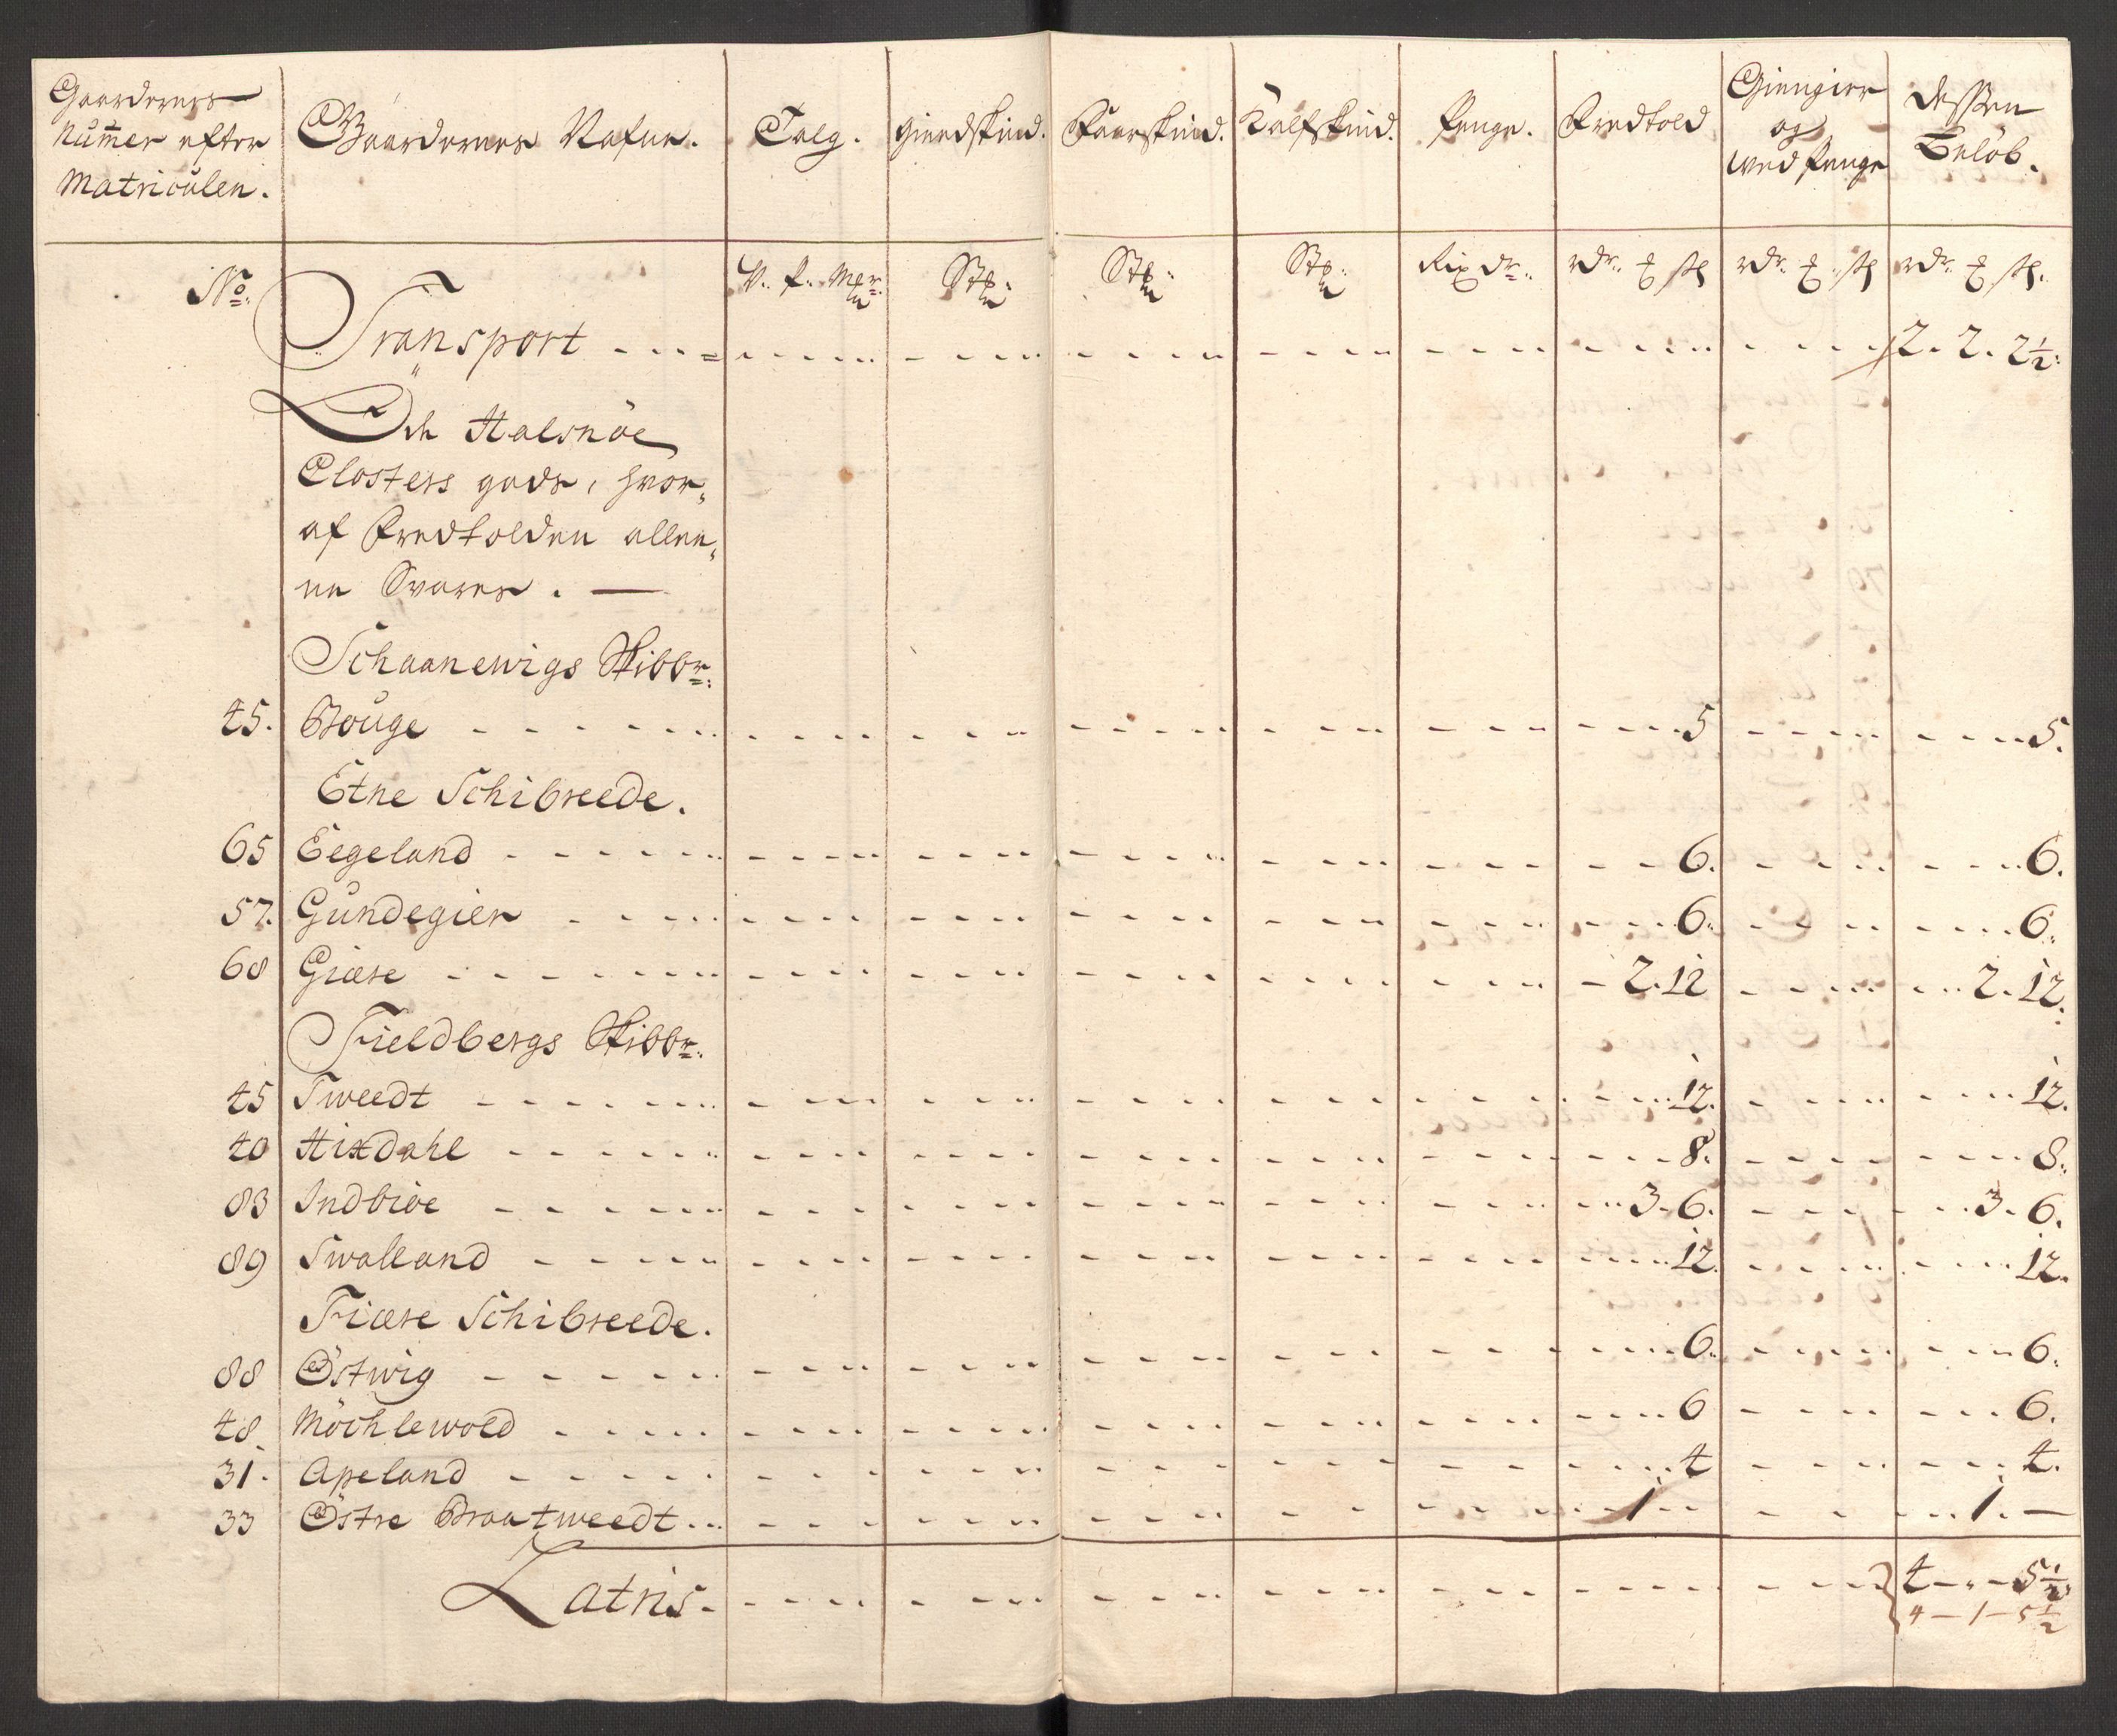 Gaardernes Nummer efter Matriculen. | Gaardernes Nafne. | Talg. | Giedskind. | Faarskind. | Kalfskind. | Penge. | Fredtold | Giengier og wed Penge | Dessen Beløb.
No. | V. P. Mrk. | Stk: | Stk: | Stk: | Rixdr. | rdr. ₰ sk | rdr. ₰ sk | rdr. ₰ sk.
Transport - - - 2. 2. 2½:
Och Halsnöe
Closters gods, hvor-
af Fredtolden alleen-
ne Svares. —
Schaanewigs Skibbr:
45. Houge - - - 5 - - - 5.
Etne Schibreede.
65 Eegeland - - - 6. - - - 6.
57. Gundegier - - - 6. - - - 6.
68 Giære - - - 2. 12 - - - 2. 12.
Fieldbergs Skibbr:
45 Tweedt - - - 12. - - - 12.
40 Hixdahl - - - 8. - - - 8.
83 Indbiøe - - - 3. 6. - - - 3. 6.
89 Swalland - - - 12. - - - 12.
Fiære Schibreede.
88 Östwig - - - 6. - - - 6.
48. Möchlewold - - - 6 - - - 6.
31. Apeland - - - 4 - - - 4.
33 Östre Braatweedt - - - 1 - - - 1. —
Latris - - - 4 - „ - 5½
4 - 1 - 5½